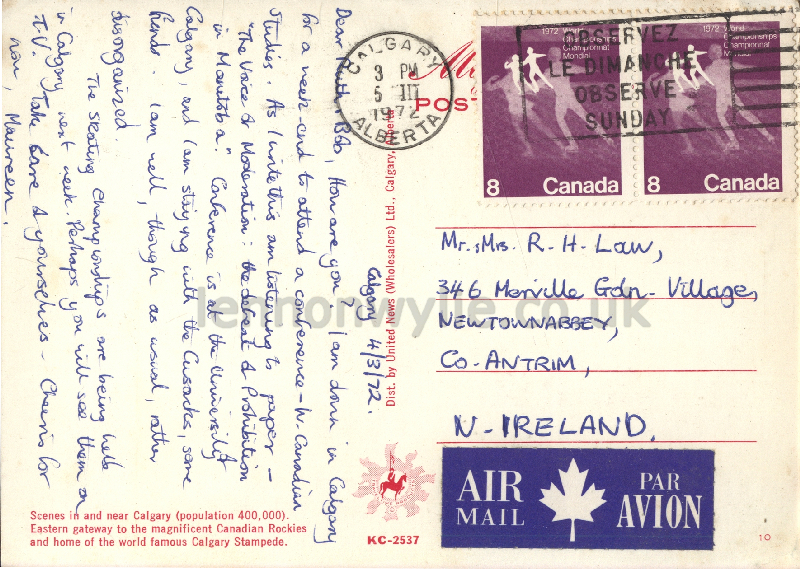 Calgary 4/3/72.
Dear Ruth, Bob, How are you? I am down in Calgary
for a week-end to attend a conference - W. Canadian
Studies. As I write this am listening to paper -
"The Voice of Moderation: the defeat of Prohibition
in Manitoba." Conference is at the University of
Calgary, and I am staying with the Cusacks, some
friends. I am well, though as usual, rather
disorganized.
The skating championships are being held
in Calgary next week. Perhaps you will see them on
T-V. Take care of yourselves - Cheerio for
now, Maureen.
Scenes in and near Calgary (population 400,000).
Eastern gateway to the magnificent Canadian Rockies
and home of the world famous Calgary Stampede.
Dist. by United News (Wholesalers) Ltd., Calgary, Alberta
KC-2537
POST
CALGARY
3 PM
5 III
1972
ALBERTA
OBSERVEZ
LE DIMANCHE
OBSERVE
SUNDAY
1972 World
Championships
Championnat
Mondial
8 Canada
1972 World
Championships
Championnat
Mondial
8 Canada
Mr. & Mrs. R-H-Law,
346 Merville Gdn-Village,
NEWTOWNABBEY,
CO-ANTRIM,
N-IRELAND.
AIR MAIL
PAR AVION
10
lennonwylie.co.uk